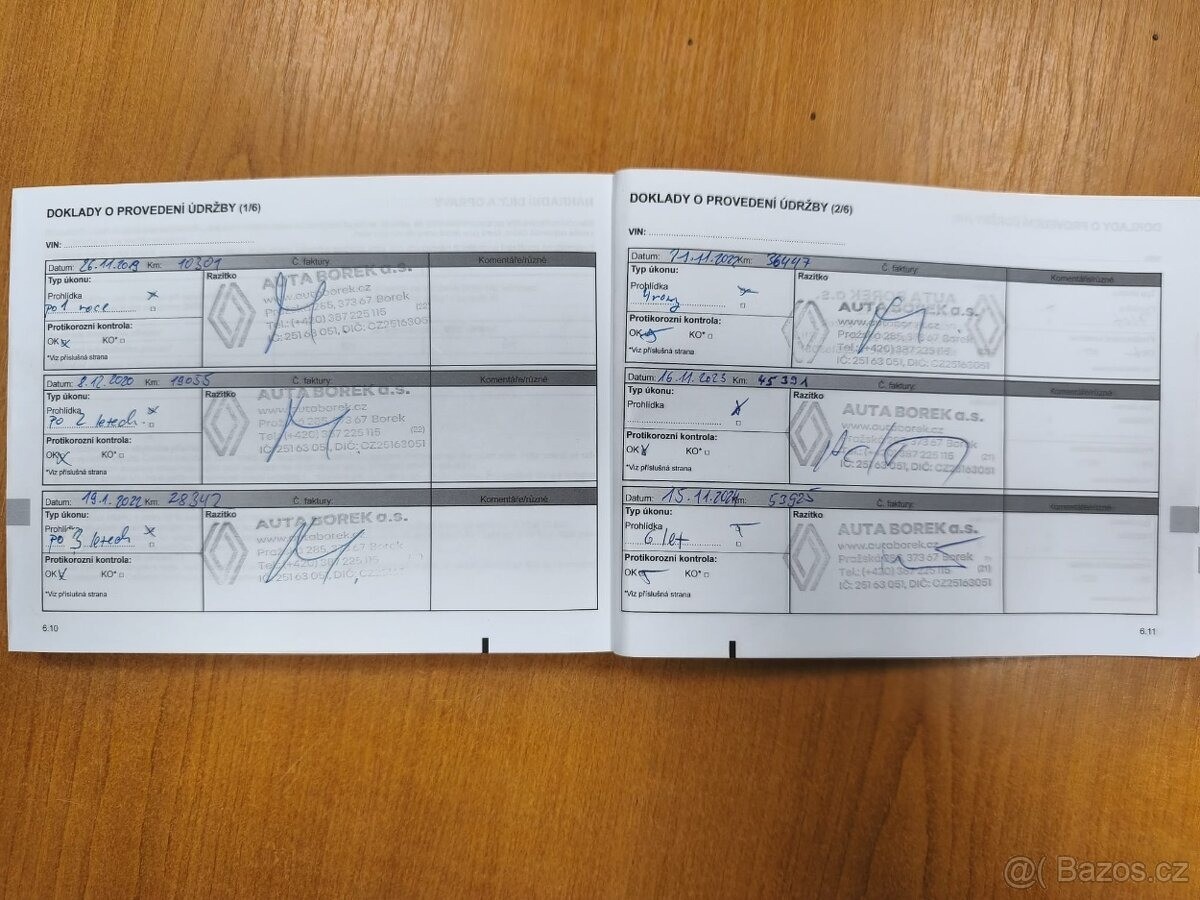 DOKLADY O PROVEDENÍ ÚDRŽBY (1/6)
VIN:
Datum: 26.11.2019 Km: 10301 Č. faktury: Komentáře/různé
Typ úkonu: Razítko
Prohlídka x
po 1 roce
Protikorozní kontrola:
OK x KO*
*Viz příslušná strana
AUTA BOREK a.s.
www.autoborek.cz
Pražská 285, 373 67 Borek
(22)
Tel.: (+420) 387 225 115
IČ: 251 63 051, DIČ: CZ25163051
Datum: 8.12.2020 Km: 19055 Č. faktury: Komentáře/různé
Typ úkonu: Razítko
Prohlídka x
po 2 letech
Protikorozní kontrola:
OK x KO*
*Viz příslušná strana
AUTA BOREK a.s.
www.autoborek.cz
Pražská 285, 373 67 Borek
Tel.: (+420) 387 225 115 (22)
IČ: 251 63 051, DIČ: CZ25163051
Datum: 19.1.2022 Km: 28347 Č. faktury: Komentáře/různé
Typ úkonu: Razítko
Prohlídka x
po 3 letech
Protikorozní kontrola:
OK x KO*
*Viz příslušná strana
AUTA BOREK a.s.
www.autoborek.cz
Pražská 285, 373 67 Borek
Tel.: (+420) 387 225 115 (22)
IČ: 251 63 051, DIČ: CZ25163051
6.10
DOKLADY O PROVEDENÍ ÚDRŽBY (2/6)
VIN:
Datum: Km: 36447 Č. faktury: Komentáře/různé
Typ úkonu: Razítko
Prohlídka x
4 roky
Protikorozní kontrola:
OK KO*
*Viz příslušná strana
AUTA BOREK a.s.
www.autoborek.cz
Pražská 285, 373 67 Borek
Tel.: (+420) 387 225 115
IČ: 251 63 051, DIČ: CZ25163051
Datum: 16.11.2023 Km: 45391 Č. faktury: Komentáře/různé
Typ úkonu: Razítko
Prohlídka x
Protikorozní kontrola:
OK x KO*
*Viz příslušná strana
AUTA BOREK a.s.
www.autoborek.cz
Pražská 285, 373 67 Borek
Tel.: (+420) 387 225 115 (21)
IČ: 251 63 051, DIČ: CZ25163051
Datum: 15.11.2024 Km: 53925 Č. faktury: Komentáře/různé
Typ úkonu: Razítko
Prohlídka
6 let
Protikorozní kontrola:
OK KO*
*Viz příslušná strana
AUTA BOREK a.s.
www.autoborek.cz
Pražská 285, 373 67 Borek
Tel.: (+420) 387 225 115 (21)
IČ: 251 63 051, DIČ: CZ25163051
6.11
@( Bazos.cz